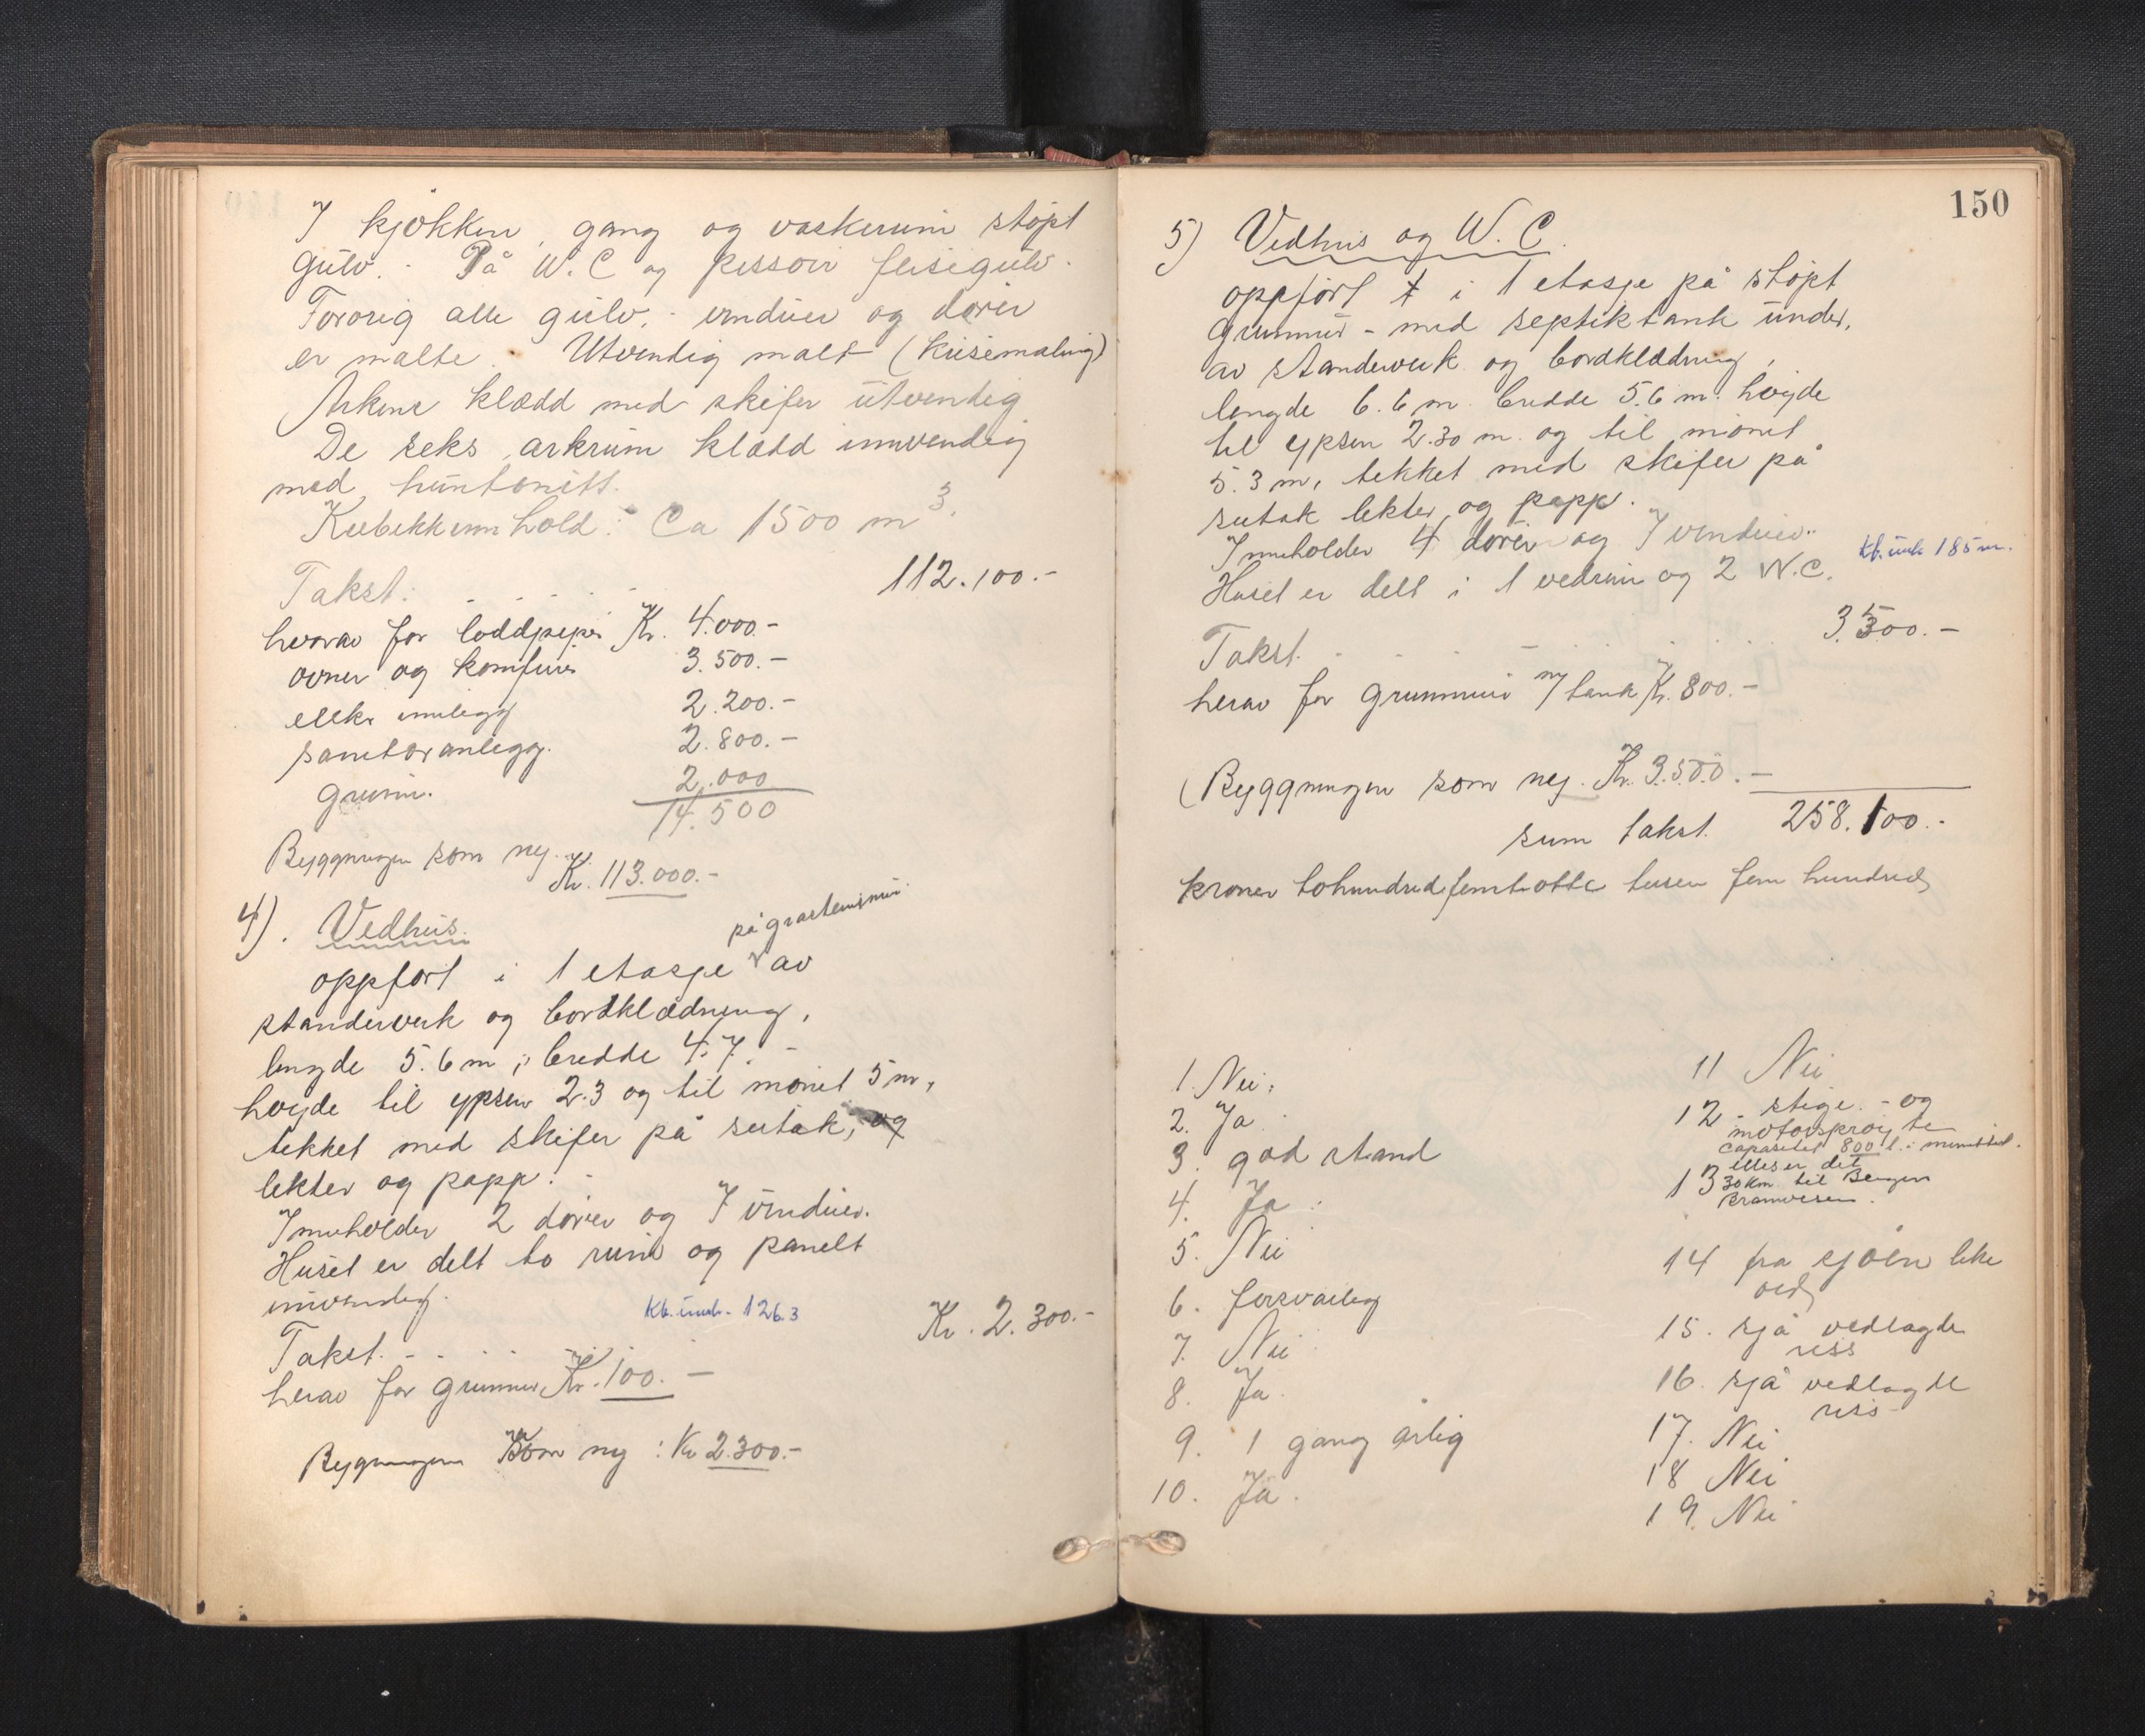 I kjøkken, gang og vaskerum støpt
gulv. - På W.C og pissoir flisegulv.
Forøvrig alle gulv, - vinduer og dører
er malte. Utvendig malt (krisemaling)
Arkene klædd med skifer utvendig
De seks arkrum klædd innvendig
med huntonitt.
Kubikkinnhold: Ca 1500 m³.
Takst: . . . . 112.100.-
hvorav for loddpiper Kr. 4.000.-
ovner og komfurer 3.500.-
elektr innlegg 2.200.-
sanitæranlegg. 2.800.-
Grunn. 2.000
14.500
Byggningen som ny.
Kr. 113.000.-
4). Vedhus.
på gråsteinsmur.
oppført i 1 etasje av
standerverk og bordklædning,
lengde 5.6 m, bredde 4.7. -
høyde til ypsen 2.3 og til mønet 5 m,
tekket med skifer på sutak, og
lekter og papp. -
Inneholder 2 dører og 7 vinduer.
Huset er delt to rum og panelt
innvendig.
Kb. innh. 126.3
Takst. - . . . . Kr. 2.300.-
herav for grunnmur Kr. 100. -
Bygningen som ny : Kr 2.300.-
150
5) Vedhus og W.C.
oppført t i 1 etasje på støpt
grunnmur - med septiktank under,
av standerverk og bordklædning,
lengde 6.6 m. bredde 5.6 m. høyde
til ypsen 2.30 m. og til mønet
5.3 m, tekket med skifer på
sutak lekter og papp.
Inneholder 4 dører og 7 vinduer.
Kb. innh 185 m.
Huset er delt i 1 vedrum og 2 W.C.
Takst. . . . . . 3.500.-
herav for grunnmur m/tank Kr. 800.-
(Byggningen som ny. Kr. 3.500.-
sum takst. 258.100.-
kroner tohundredfemtiotte tusen fem hundred
1. Nei.
2. Ja
3. god stand
4. Ja
5. Nei
6. forsvarlig
7. Nei
8. Ja.
9. 1 gang årlig
10. Ja.
11 Nei
12 - stige. - og
motorsprøyte
capasitet 800 l. i minuttet.
elles er det
13 30 km. til Bergen
Brannvesen.
14 fra sjøen like
ved
15. sjå vedlagde
riss
16. sjå vedlagde
riss
17. Nei
18 Nei
19. Nei